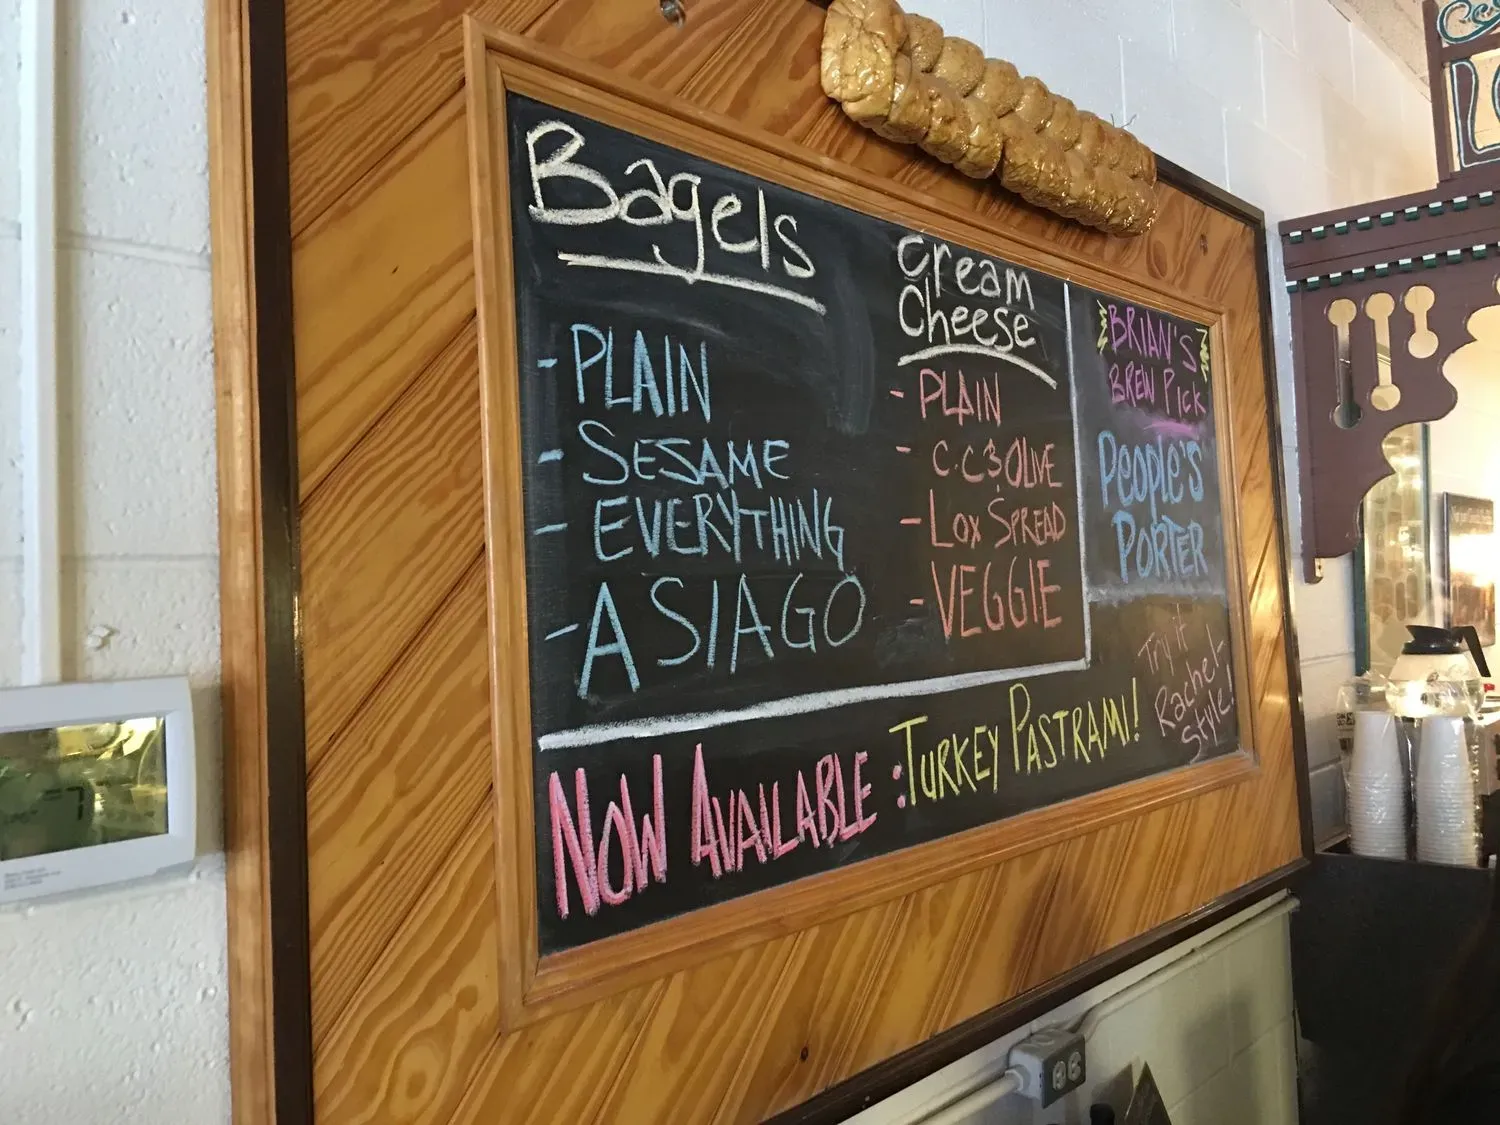 Bagels
- PLAIN
- SESAME
- EVERYTHING
- ASIAGO
Cream
Cheese
- PLAIN
- C.C & OLIVE
- LOX SPREAD
- VEGGIE
BRIAN'S
BREW PICK
PEOPLE'S
PORTER
Try it
Rachel-
Style!
NOW AVAILABLE : TURKEY PASTRAMI!